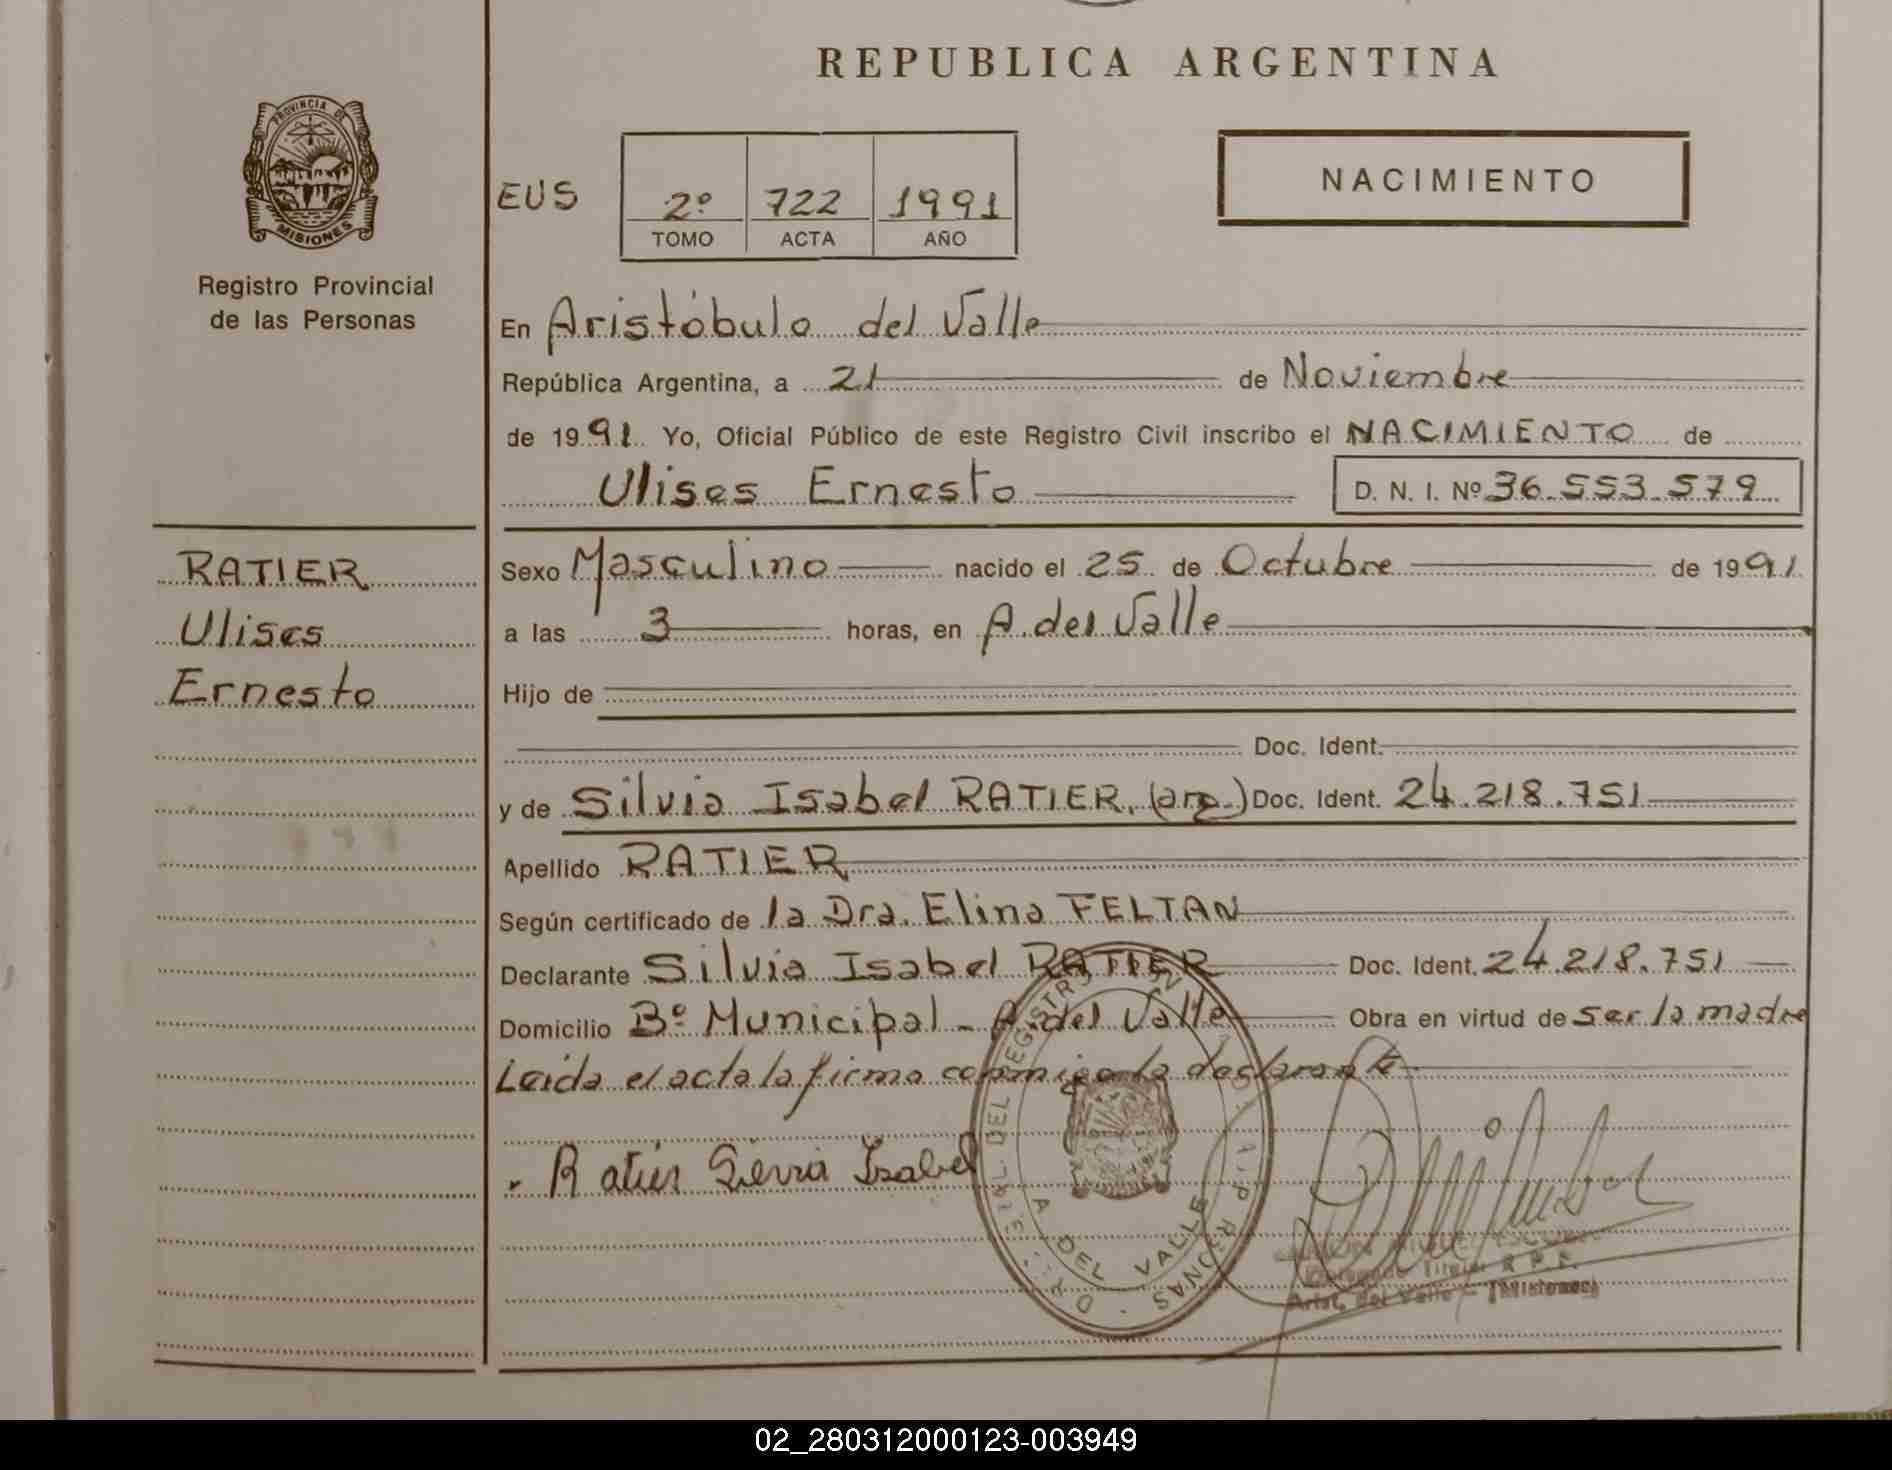 REPUBLICA ARGENTINA
PROVINCIA DE
MISIONES
Registro Provincial
de las Personas
EUS
2º 722 1991
TOMO ACTA AÑO
NACIMIENTO
En Aristóbulo del Valle
República Argentina, a 21 de Noviembre
de 1991 Yo, Oficial Público de este Registro Civil inscribo el NACIMIENTO de
Ulises Ernesto D. N. I. Nº 36.553.579
RATIER
Ulises
Ernesto
Sexo Masculino nacido el 25 de Octubre de 1991
a las 3 horas, en A. del Valle
Hijo de
Doc. Ident.
y de Silvia Isabel RATIER. (arg.) Doc. Ident. 24.218.751
Apellido RATIER
Según certificado de la Dra. Elina FELTAN
Declarante Silvia Isabel RATIER Doc. Ident. 24.218.751
Domicilio Bº Municipal - A. del Valle Obra en virtud de ser la madre
Leida el acta la firma conmigo la declarante
Ratier Silvia Isabel
DEL REGISTRO
A DEL VALLE
Delegado Titular R. P. P.
Arist. del Valle - (Misiones)
02_280312000123-003949